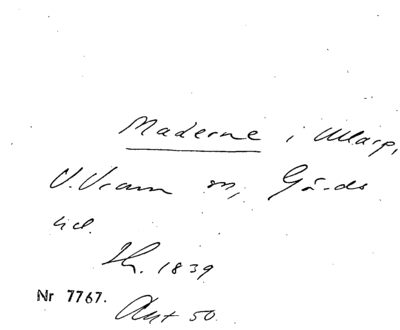 Maderne i Ullarp,
V. Vram sn, Gärds
hd.
Skr. 1839
Nr 7767.
Ant 50.